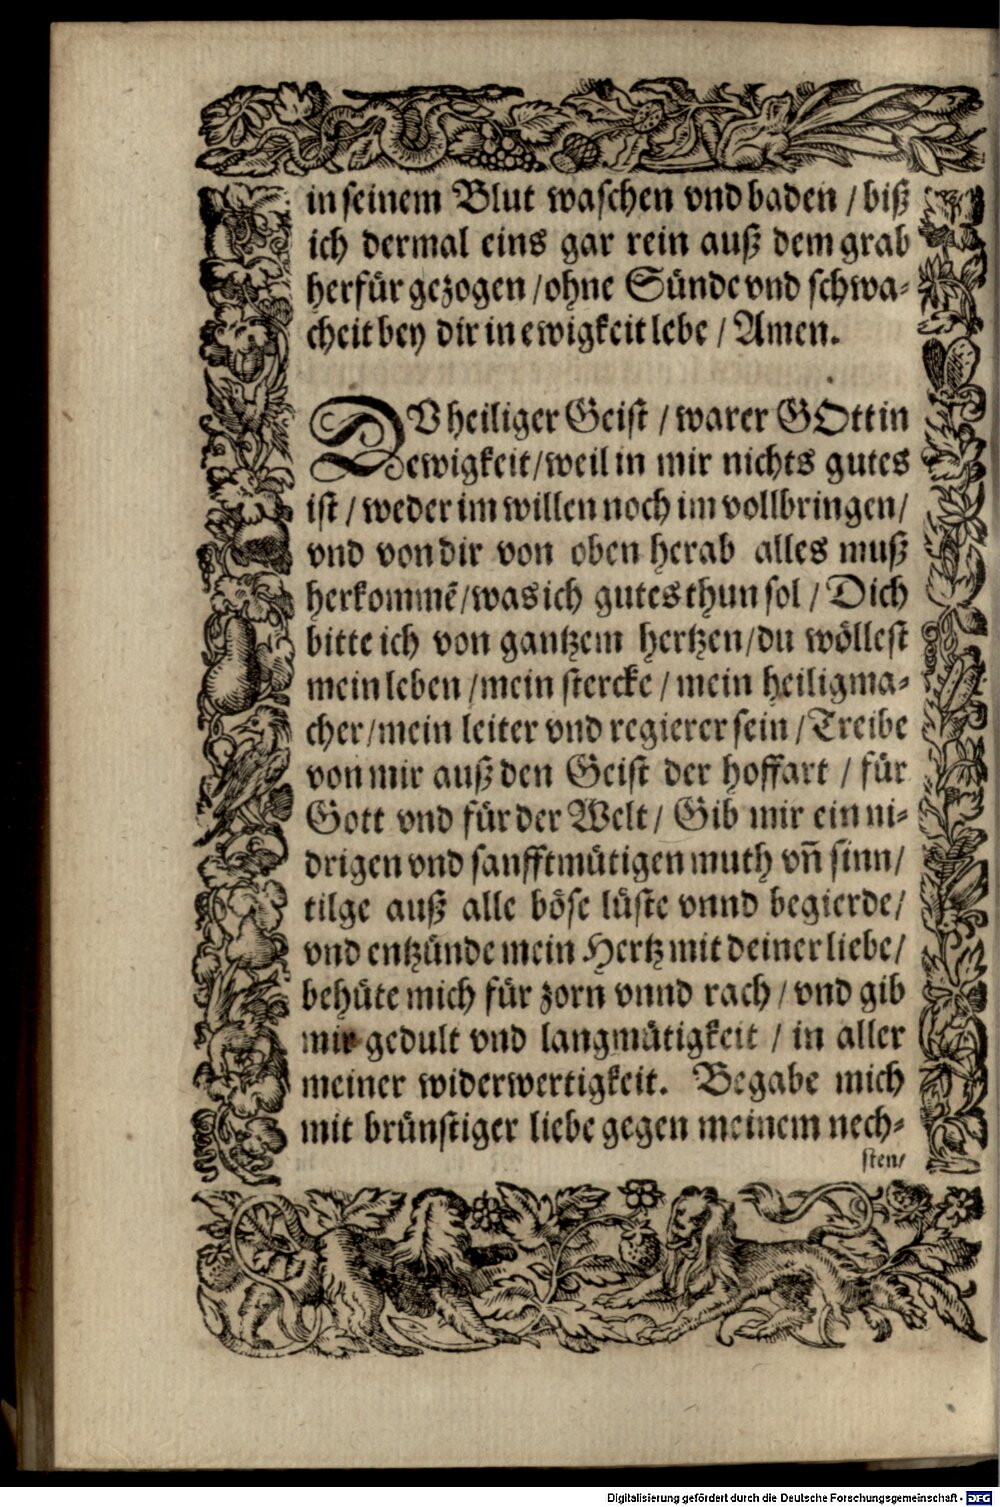 in seinem Blut waschen vnd baden / biß
ich dermal eins gar rein auß dem grab
herfür gezogen / ohne Sünde vnd schwa⸗
cheit bey dir in ewigkeit lebe / Amen.
DV heiliger Geist / warer GOtt in
ewigkeit / weil in mir nichts gutes
ist / weder im willen noch im vollbringen /
vnd von dir von oben herab alles muß
herkommẽ / was ich gutes thun sol / Dich
bitte ich von gantzem hertzen / du wöllest
mein leben / mein stercke / mein heiligma⸗
cher / mein leiter vnd regierer sein / Treibe
von mir auß den Geist der hoffart / für
Gott vnd für der Welt / Gib mir ein ni⸗
drigen vnd sanfftmütigen muth vñ sinn /
tilge auß alle böse lüste vnnd begierde /
vnd entzünde mein Hertz mit deiner liebe /
behüte mich für zorn vnnd rach / vnd gib
mir gedult vnd langmütigkeit / in aller
meiner widerwertigkeit. Begabe mich
mit brünstiger liebe gegen meinem nech⸗
sten /
Digitalisierung gefördert durch die Deutsche Forschungsgemeinschaft - DFG